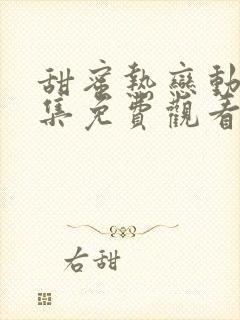 甜蜜熱戀動
集免費觀看
右甜